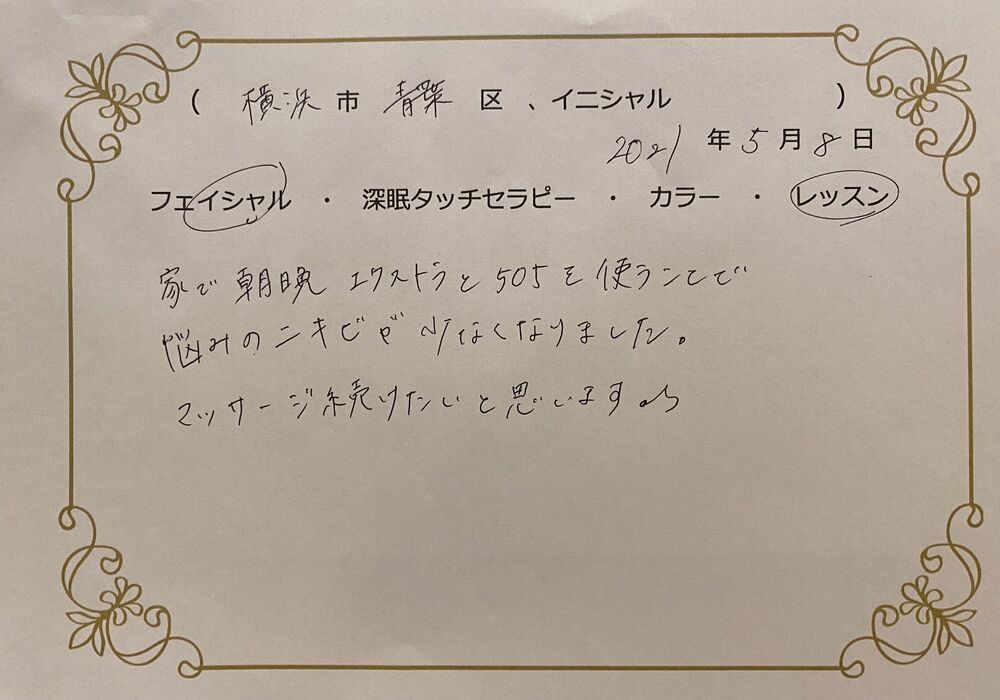 ( 横浜 市 青葉 区 、イニシャル )
2021 年 5 月 8 日
フェイシャル ・ 深眠タッチセラピー ・ カラー ・ レッスン
家で朝晩 エクストラと505を使うことで
悩みのニキビが少なくなりました。
マッサージ続けたいと思います